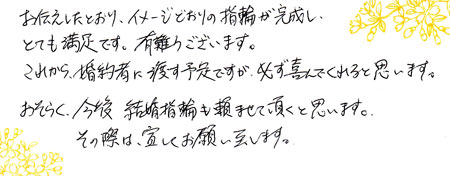 お伝えしたとおり、イメージどおりの指輪が完成し、
とても満足です。有難うございます。
これから、婚約者に渡す予定ですが、必ず喜んでくれると思います。
おそらく、今後 結婚指輪も頼ませて頂くと思います。
その際は、宜しくお願い致します。